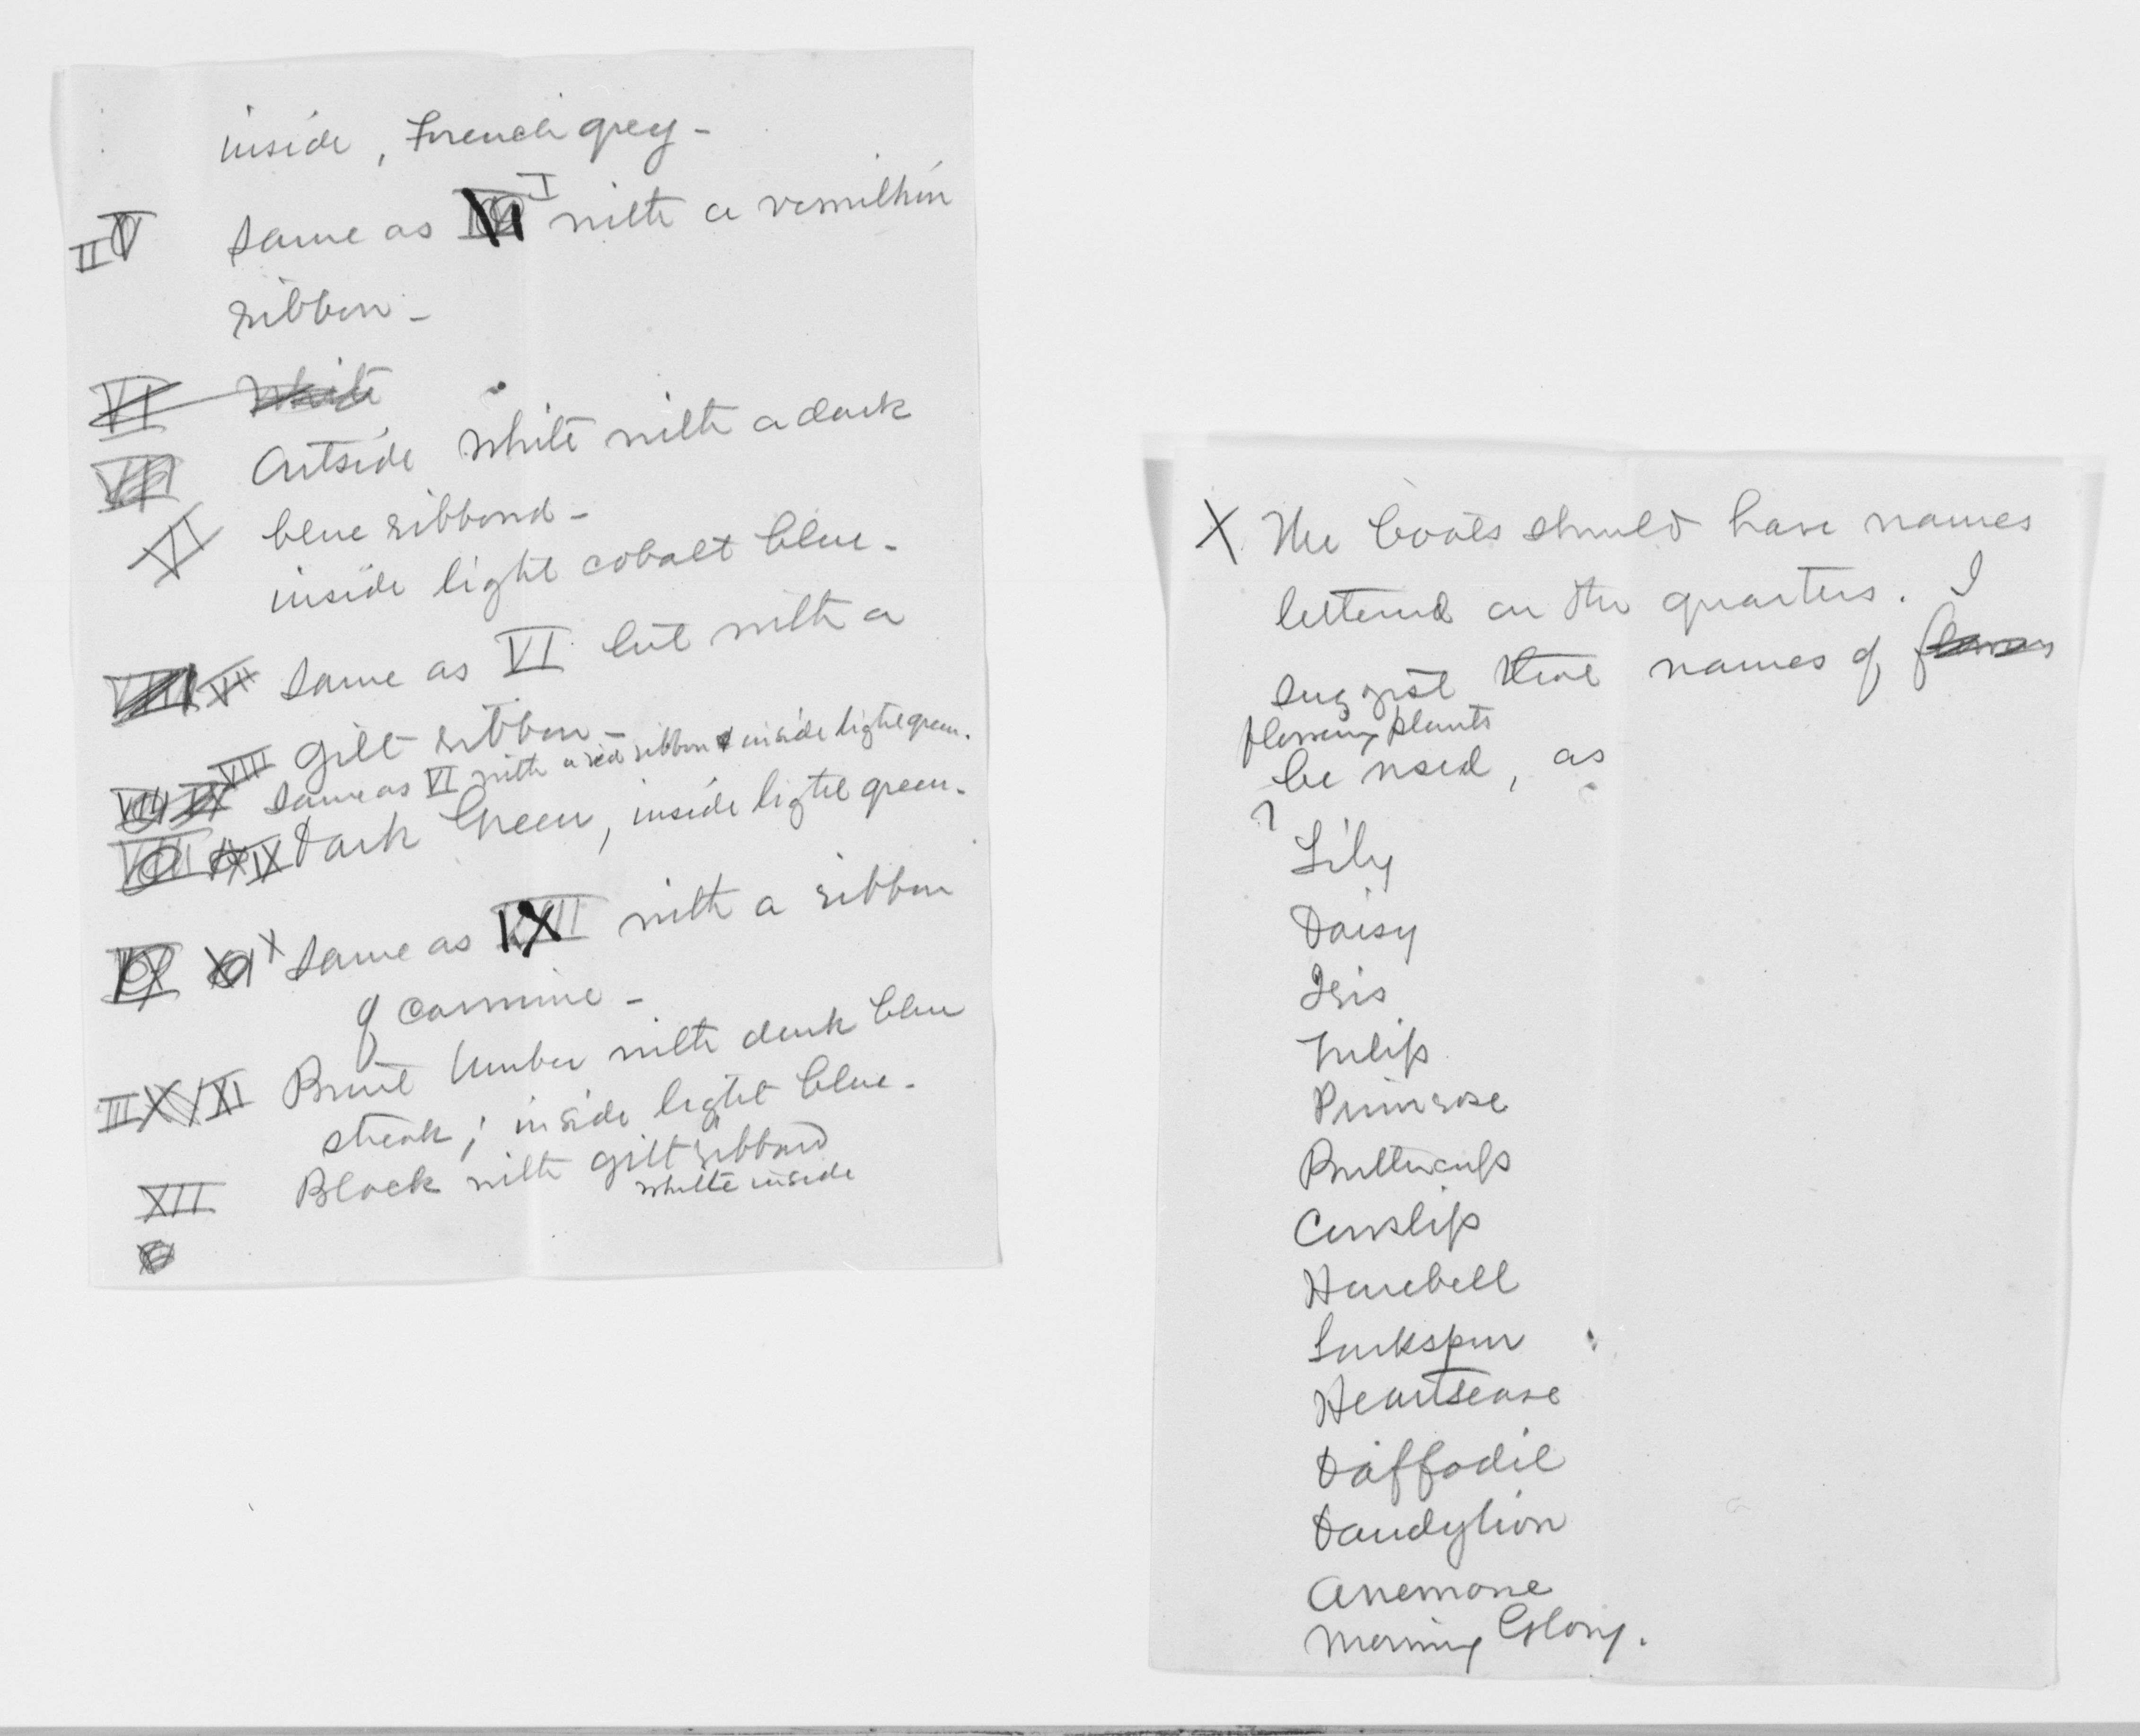 inside, French grey -
II V same as VI I with a vermilion
ribbon -
VI White
Outside white with a dark
VI blue ribbond -
inside light cobalt blue -
same as VI but with a
gilt ribbon -
VIII same as VI with a red ribbon & inside light green.
IX Dark Green, inside light green -
X same as IX with a ribbon
of carmine -
III X XI Burnt Umber with dark blue
streak; inside light blue -
XII Black with gilt ribband
white inside
X The boats should have names
lettered on the quarters. I
suggest that names of flowers
flowering plants
be used, as
?
Lily
Daisy
Iris
Tulip
Primrose
Buttercup
Cowslip
Harebell
Larkspur
Heartsease
Daffodil
Dandylion
Anemone
Morning Glory.